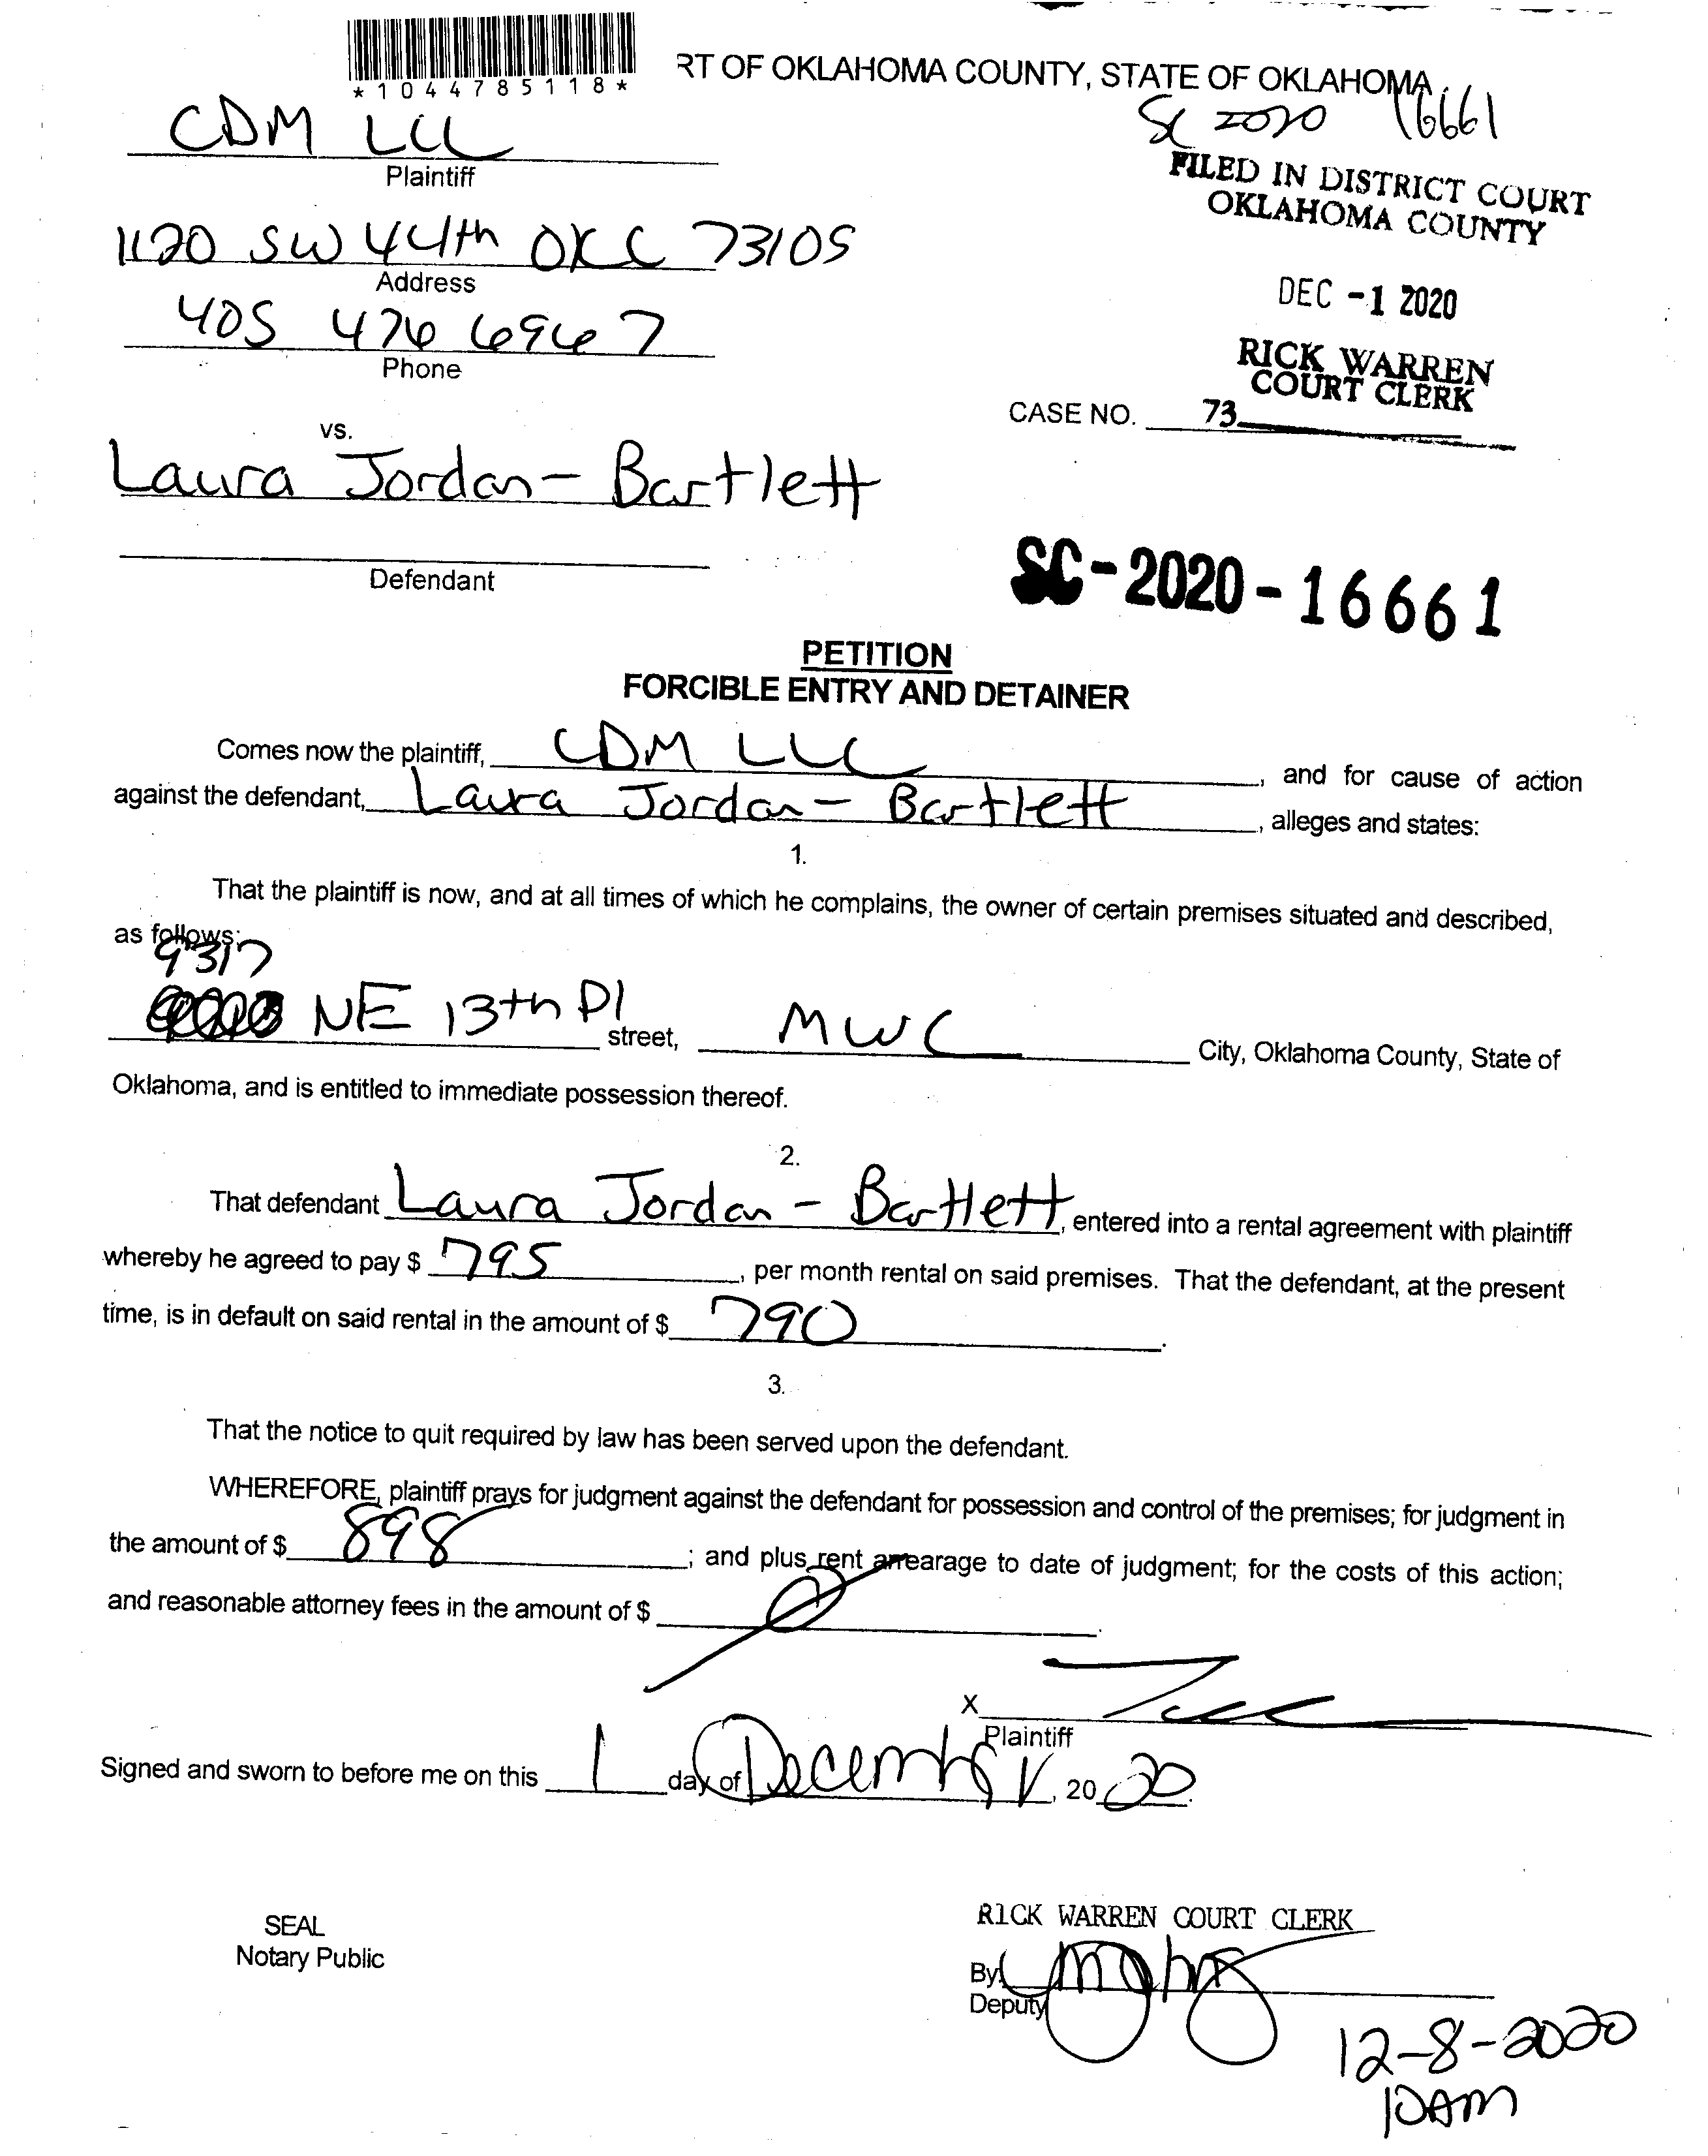 *1044785118*
RT OF OKLAHOMA COUNTY, STATE OF OKLAHOMA
SC 2020 16661
CDM LLC
Plaintiff
FILED IN DISTRICT COURT
OKLAHOMA COUNTY
1120 SW 44th OKC 73105
Address
DEC -1 2020
405 476 6967
Phone
RICK WARREN
COURT CLERK
CASE NO. 73
vs.
Laura Jordan-Bartlett
Defendant
SC-2020-16661
PETITION
FORCIBLE ENTRY AND DETAINER
Comes now the plaintiff, CDM LLC, and for cause of action
against the defendant, Laura Jordan-Bartlett, alleges and states:
1.
That the plaintiff is now, and at all times of which he complains, the owner of certain premises situated and described,
as follows:
9317
NE 13th Pl street, MWC City, Oklahoma County, State of
Oklahoma, and is entitled to immediate possession thereof.
2.
That defendant Laura Jordan-Bartlett, entered into a rental agreement with plaintiff
whereby he agreed to pay $ 795, per month rental on said premises. That the defendant, at the present
time, is in default on said rental in the amount of $ 790.
3.
That the notice to quit required by law has been served upon the defendant.
WHEREFORE, plaintiff prays for judgment against the defendant for possession and control of the premises; for judgment in
the amount of $ 898; and plus rent arrearage to date of judgment; for the costs of this action;
and reasonable attorney fees in the amount of $
X
Plaintiff
Signed and sworn to before me on this 1 day of December, 2020.
SEAL
Notary Public
RICK WARREN COURT CLERK
By
Deputy
12-8-2020
10AM